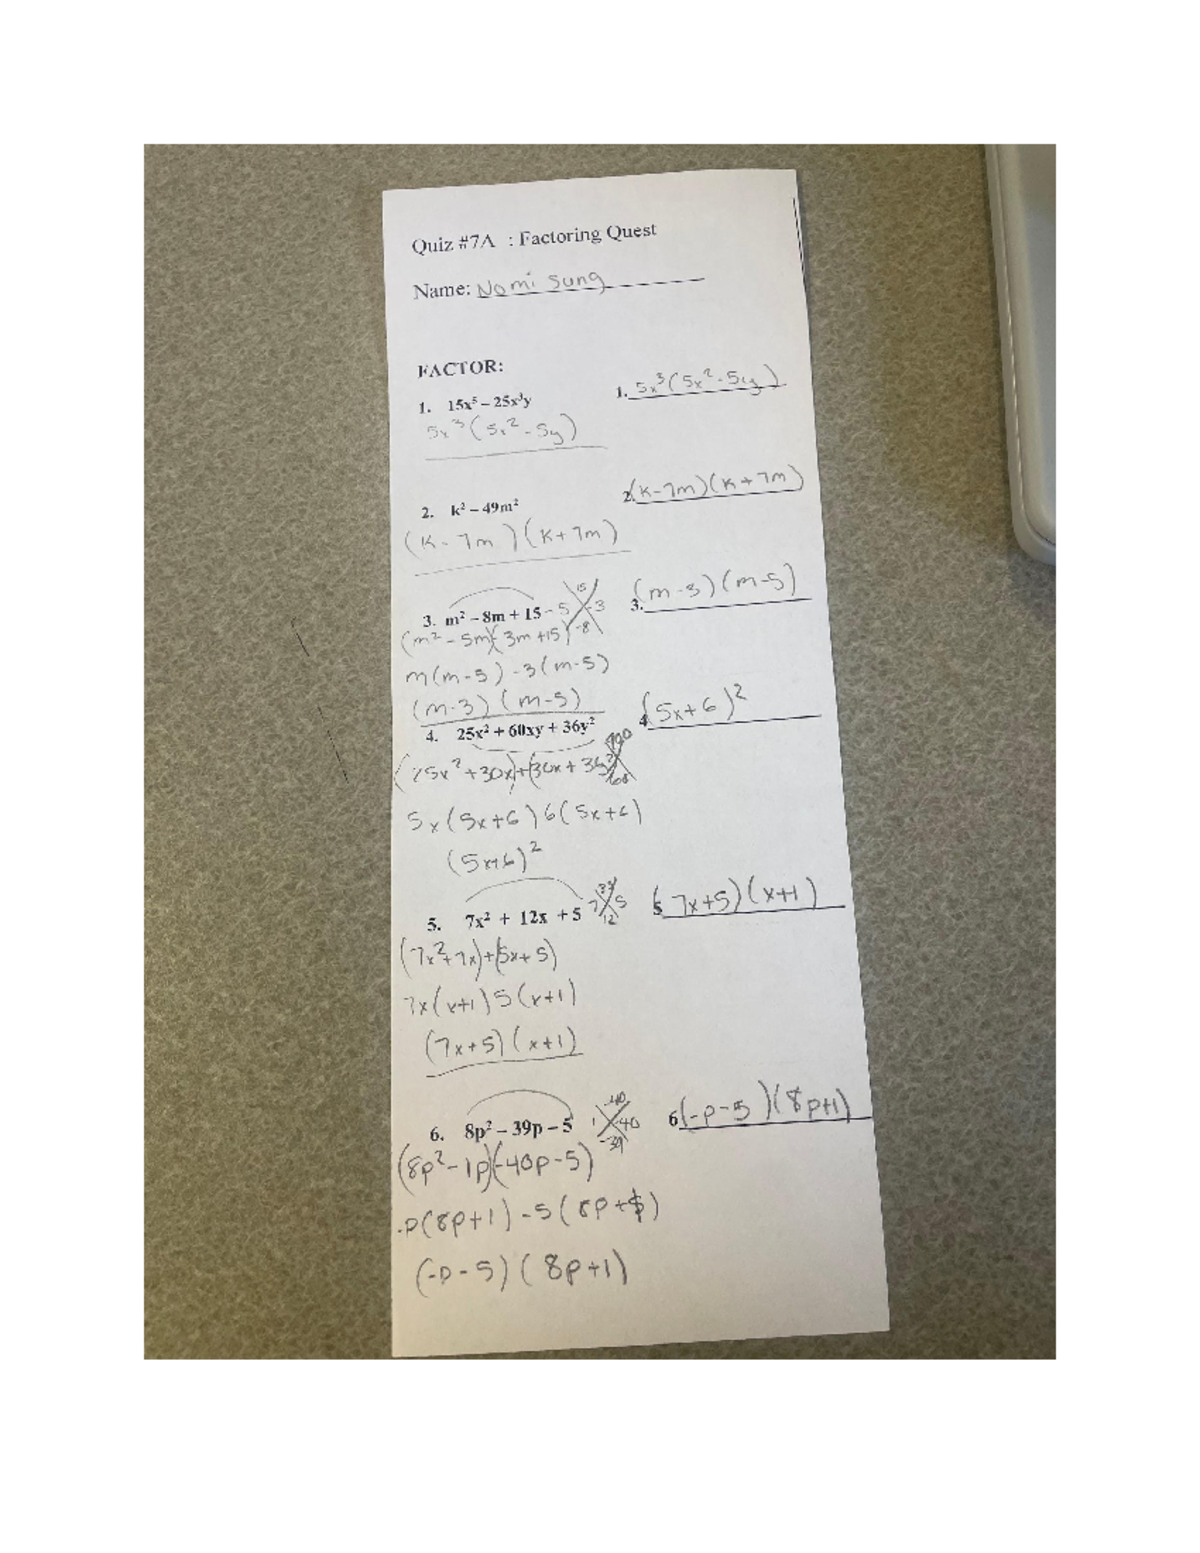 Quiz #7A : Factoring Quest
Name: Nomi Sung
FACTOR:
1. 15x⁵ – 25x³y
1. 5x³(5x² - 5y)
5x³(5x² - 5y)
2. k² – 49m²
2. (k-7m)(k+7m)
(k-7m)(k+7m)
3. m² – 8m + 15
-5 15 -3
-8
3. (m-3)(m-5)
(m² - 5m)(3m +15)
m(m-5) -3(m-5)
(m-3)(m-5)
4. 25x² + 60xy + 36y²
900
60
4. (5x+6)²
(25x² +30x)+(30x + 36)
5x(5x+6)6(5x+6)
(5x+6)²
5. 7x² + 12x +5
7 35 5
12
5. (7x+5)(x+1)
(7x²+7x)+(5x+5)
7x(x+1)5(x+1)
(7x+5)(x+1)
6. 8p² – 39p – 5
-40
1 -40
-39
6. (-p-5)(8p+1)
(8p²-1p)(-40p-5)
-p(8p+1)-5(8p+1)
(-p-5)(8p+1)